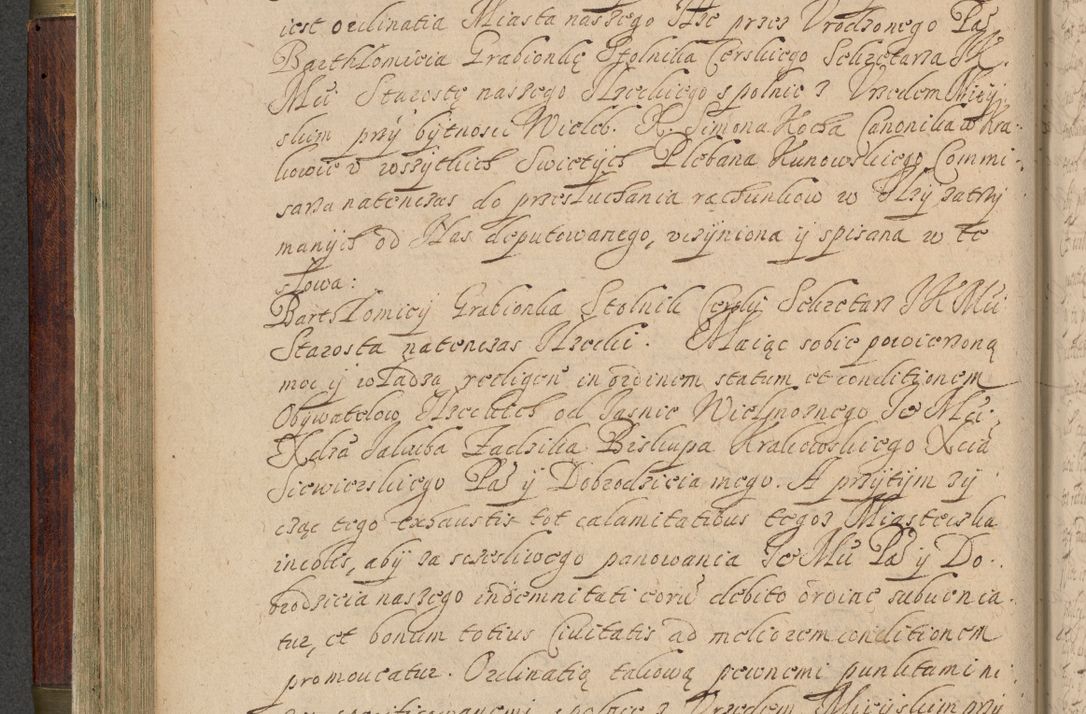 iest ordinatia Miasta naszego Iłże przez Vrodzonego Pa
Barthłomieia Grabionkę Stolnika Cerskiego Sekretarza JK
Mći Starostę naszego Iłzeckiego społnie z Vrzedem Miey:
skim przy bytnosci Wieleb. X. Simona Kocha Canonika w Kra:
kowie v wszytkich Swiętych Plebana Kunowskiego Commi:
sarza natenczas do przesłuchania rachunkow w Iłzy zatrzy
manych od Nas deputowanego, vczyniona ÿ spisana w te
słowa:
Barthłomiey Grabionka Stolnik Cerski Sekretarz JK Mći
Starosta natenczas Iłzecki. Maiąc sobie powierzoną
moc ÿ władzą redigen in ordinem statum et conditionem
Obywatelow Iłzeckich od Jasnie Wielmoznego Je Mći
Xdza Jakuba Zadzika Biskupa Krakowskiego Xcia
Siewierskiego Pa ÿ Dobrodzieia mego. A przytym zy
cząc tego exhaustis tot calamitatibus tegoz Miasteczka
incolis, aby za szczesliwego panowania Je Mći Pa ÿ Do:
brodzieia naszego indemnitati eorū debito ordine subuenia:
tur, et bonum totius Ciuitatis ad meliorem conditionem
promoueatur. Ordinatią takową pewnemi punktami ni:
społnie z Vrzedem Mieyskim przy